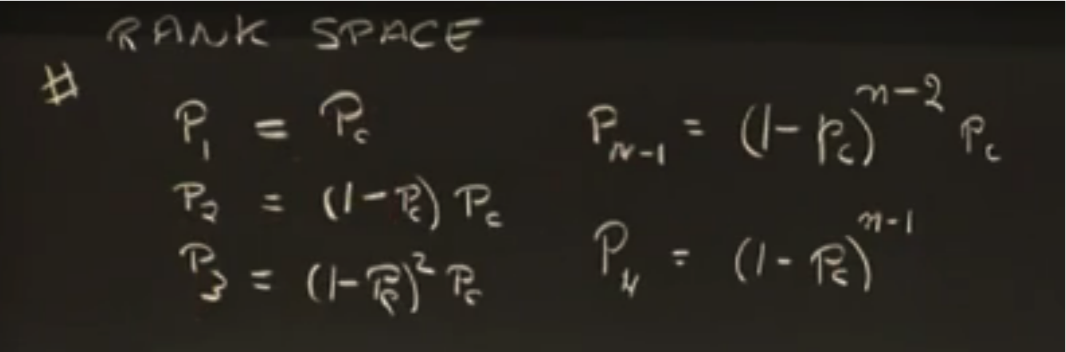 RANK SPACE
#
P₁ = P_c
P₂ = (1-P_c) P_c
P₃ = (1-P_c)² P_c
P_{N-1} = (1-P_c)^{n-2} P_c
P_N = (1-P_c)^{n-1}